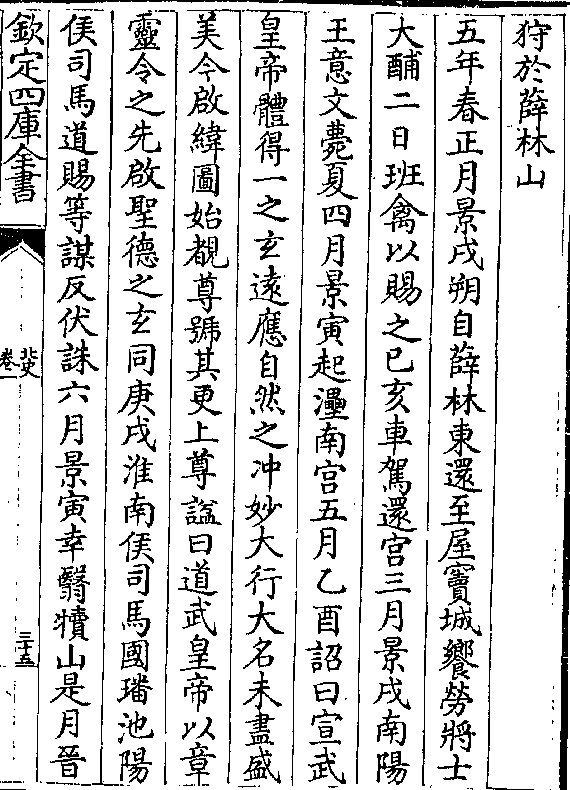 狩於薛林山
五年春正月景戌朔自薛林東還至屋竇城饗勞將士
大酺二日班禽以賜之已亥車駕還宫三月景戌南陽
王意文薨夏四月景寅起灅南宫五月乙酉詔曰宣武
皇帝體得一之玄逺應自然之冲妙大行大名未盡盛
美今啟緯圖始覩尊號其更上尊諡曰道武皇帝以章
靈命之先啟聖德之玄同庚戌淮南侯司馬國璠池陽
侯司馬道賜等謀反伏誅六月景寅幸翳犢山是月晉
欽定四庫全書
北史
卷一
三十五